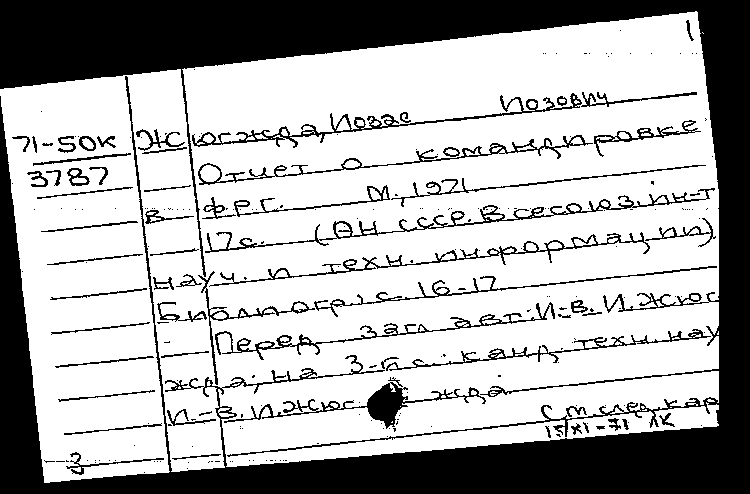 1
71-50К Жюгжда, Йозас Йозович
3787 Отчет о командировке
в ФРГ. М., 1971
17с. (АН СССР. Всесоюз. ин-т
науч. и техн. информации)
Библиогр.: с. 16-17
Перед загл. авт.: И.-В. И. Жюг-
жда; на 3-й с.: канд. техн. нау
И.-В. И. Жюгжда
См. след. кар
15/XI-71 ЛК
3